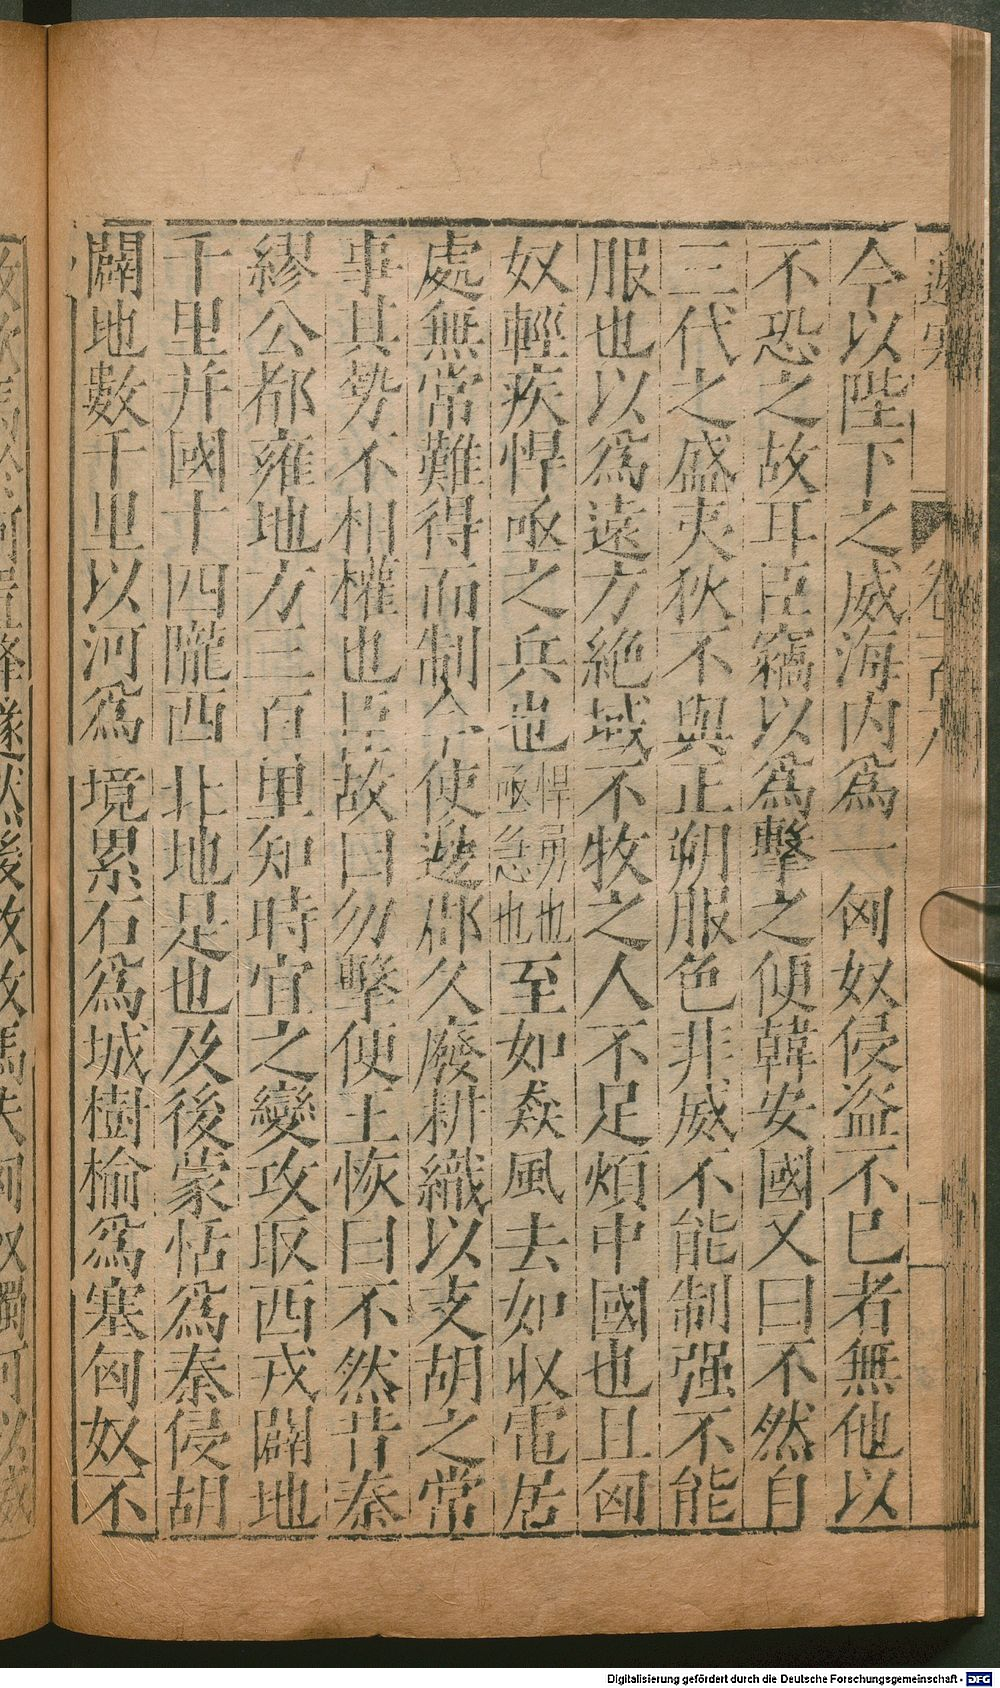 今以陛下之威海内爲一匈奴侵盜不已者無他以
不恐之故耳臣竊以爲擊之便韓安國又曰不然自
三代之盛夷狄不與正朔服色非威不能制强不能
服也以爲遠方絶域不牧之人不足煩中國也且匈
奴輕疾悍亟之兵也悍勇也亟急也至如猋風去如收電居
處無常難得而制今使邊郡久廢耕織以支胡之常
事其勢不相權也臣故曰勿擊便王恢曰不然昔秦
繆公都雍地方三百里知時宜之變攻取西戎闢地
千里并國十四隴西北地是也及後蒙恬爲秦侵胡
闢地數千里以河爲境累石爲城樹榆爲塞匈奴不
Digitalisierung gefördert durch die Deutsche Forschungsgemeinschaft - DFG